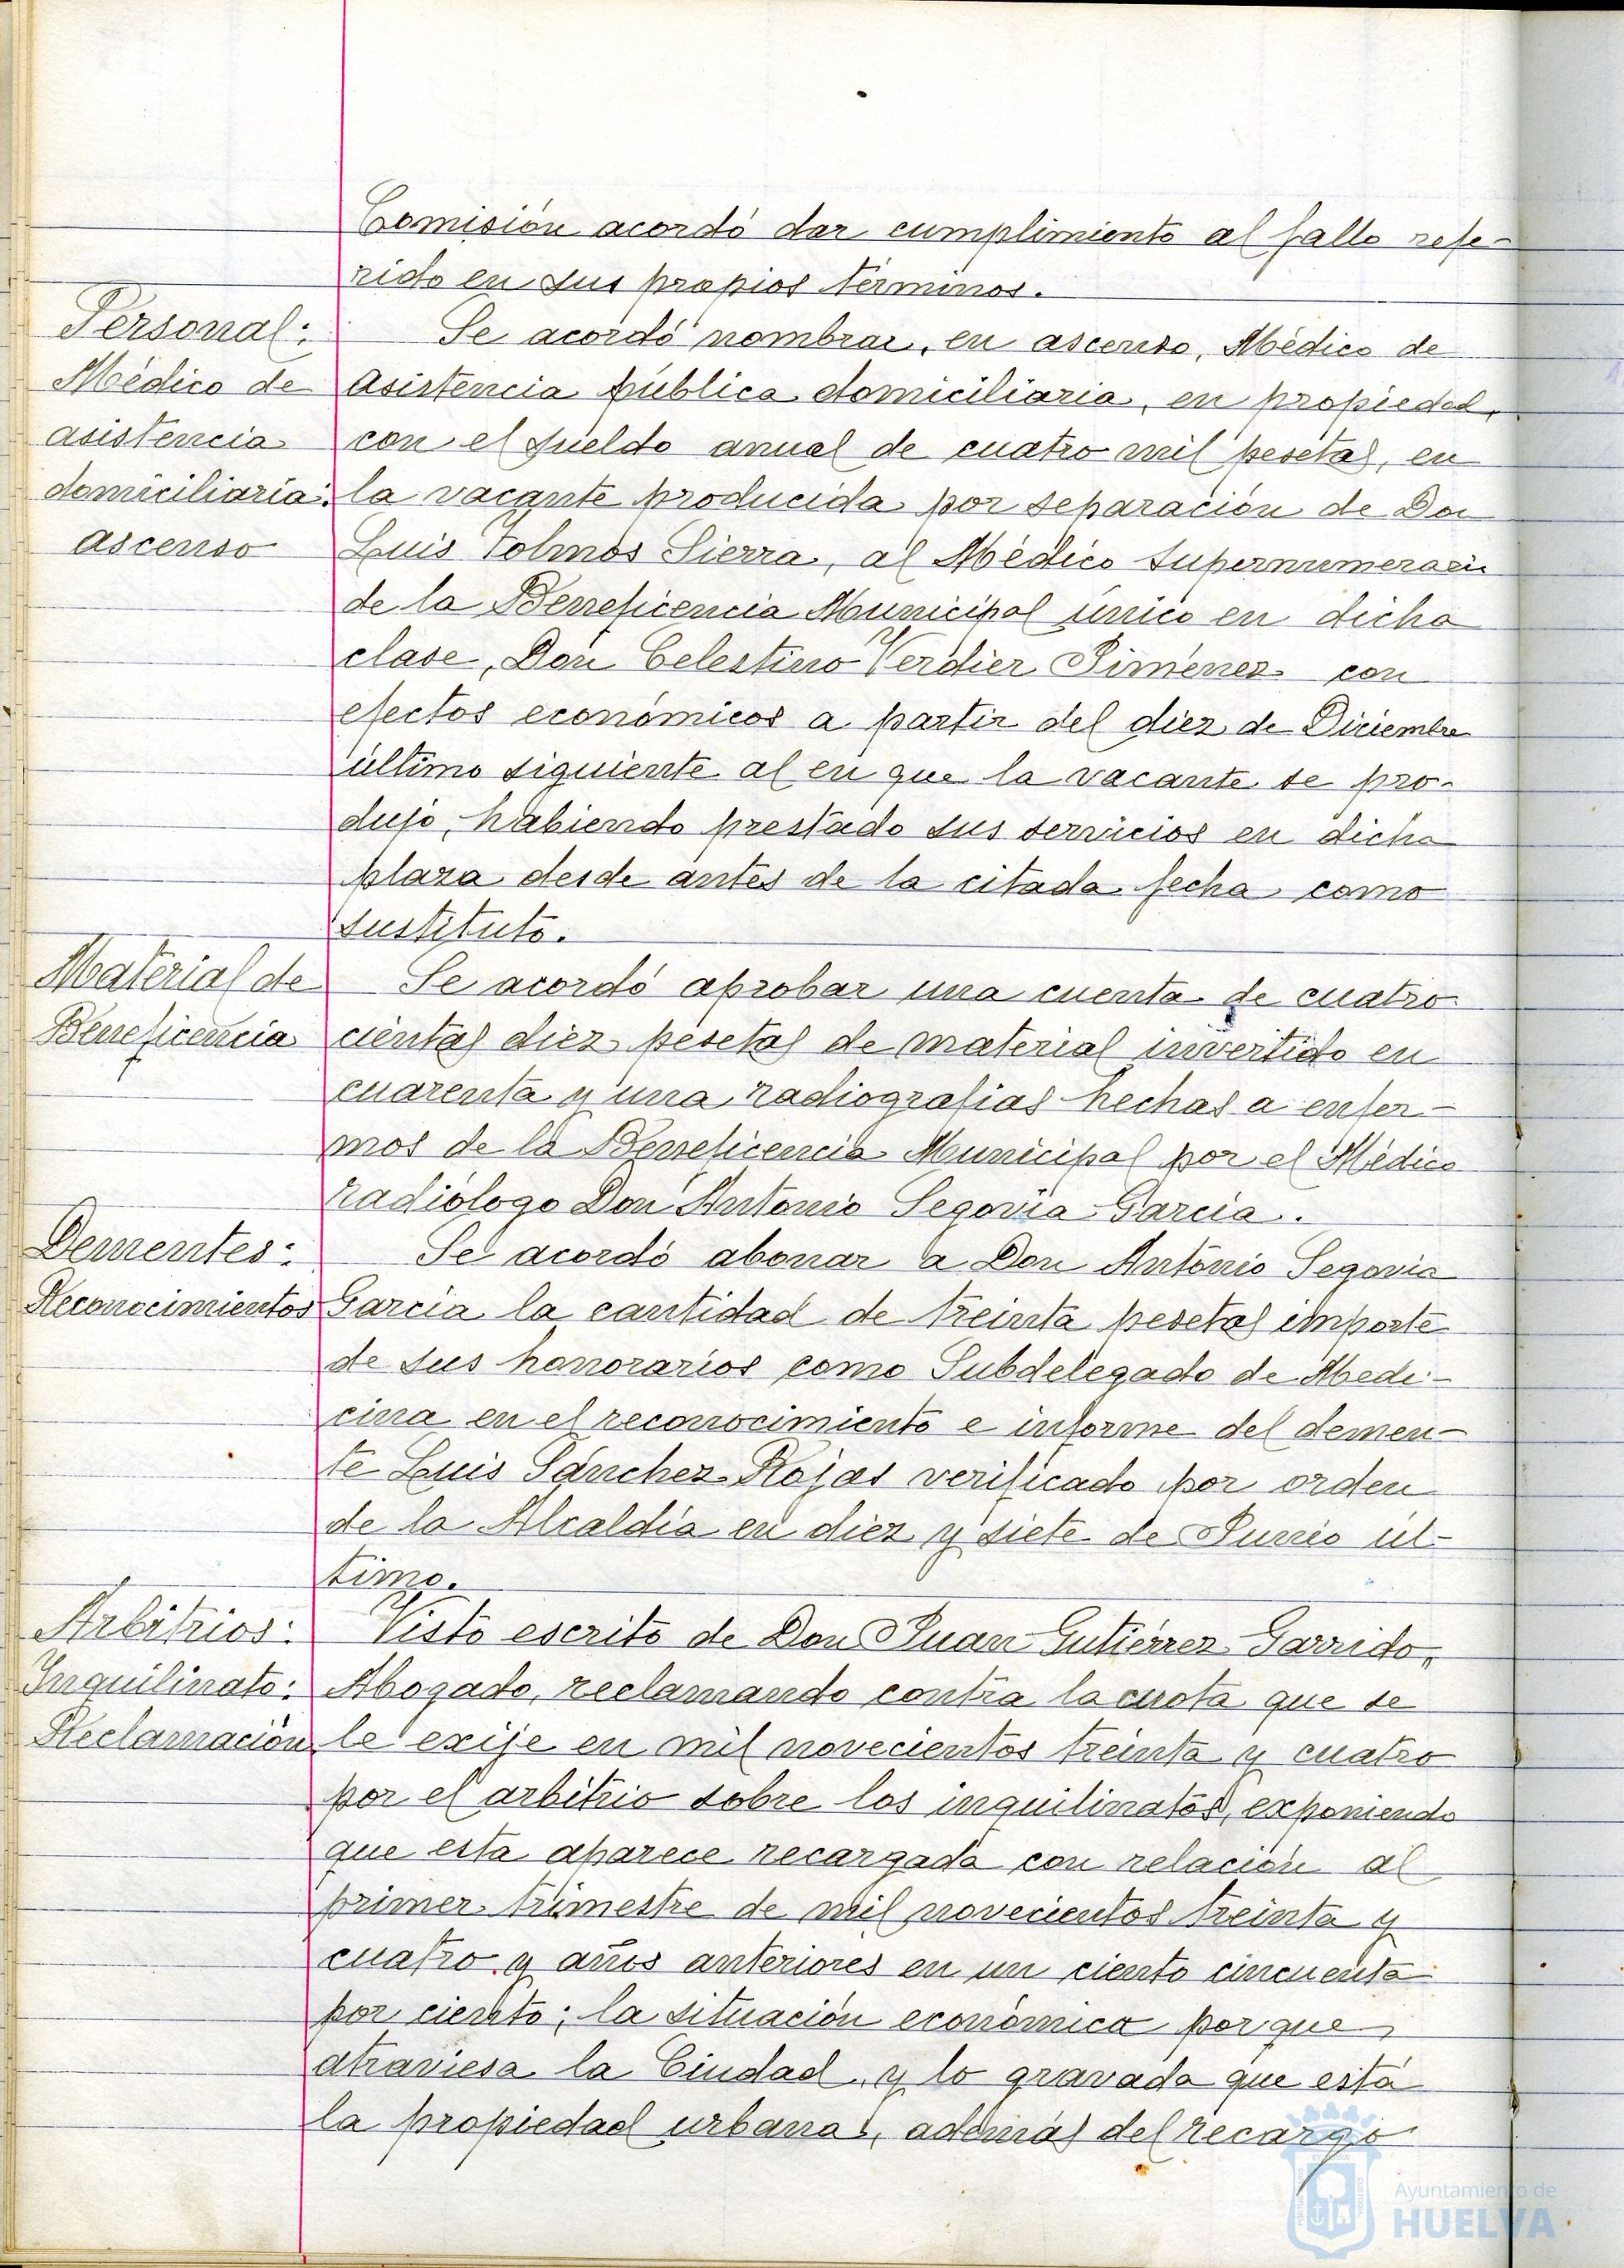 Comisión acordó dar cumplimiento al fallo refe-
rido en sus propios términos.
Personal:
Médico de
asistencia
domiciliaria:
ascenso
Se acordó nombrar, en ascenso, Médico de
asistencia pública domiciliaria, en propiedad,
con el sueldo anual de cuatro mil pesetas, en
la vacante producida por separación de Don
Luis Tolmos Sierra, al Médico Supernumerario
de la Beneficencia Municipal único en dicha
clase, Don Celestino Verdier Jiménez con
efectos económicos a partir del diez de Diciembre
último siguiente al en que la vacante se pro-
dujo, habiendo prestado sus servicios en dicha
plaza desde antes de la citada fecha como
sustituto.
Material de
Beneficencia
Se acordó aprobar una cuenta de cuatro
cientas diez pesetas de material invertido en
cuarenta y una radiografias hechas a enfer-
mos de la Beneficencia Municipal por el Médico
radiólogo Don Antonio Segovia Garcia.
Dementes:
Reconocimientos
Se acordó abonar a Don Antonio Segovia
Garcia la cantidad de treinta pesetas importe
de sus honorarios como Subdelegado de Medi-
cina en el reconocimiento e informe del demen-
te Luis Sánchez Rojas verificado por orden
de la Alcaldía en diez y siete de Junio úl-
timo.
Arbitrios:
Inquilinato:
Reclamación
Visto escrito de Don Juan Gutiérrez Garrido,
Abogado, reclamando contra la cuota que se
le exije en mil novecientos treinta y cuatro
por el arbitrio sobre los inquilinatos, exponiendo
que esta aparece recargada con relación al
primer trimestre de mil novecientos treinta y
cuatro y años anteriores en un ciento cincuenta
por ciento; la situación económica porque
atraviesa la Ciudad, y lo gravada que está
la propiedad urbana, además del recargo
Ayuntamiento de
HUELVA